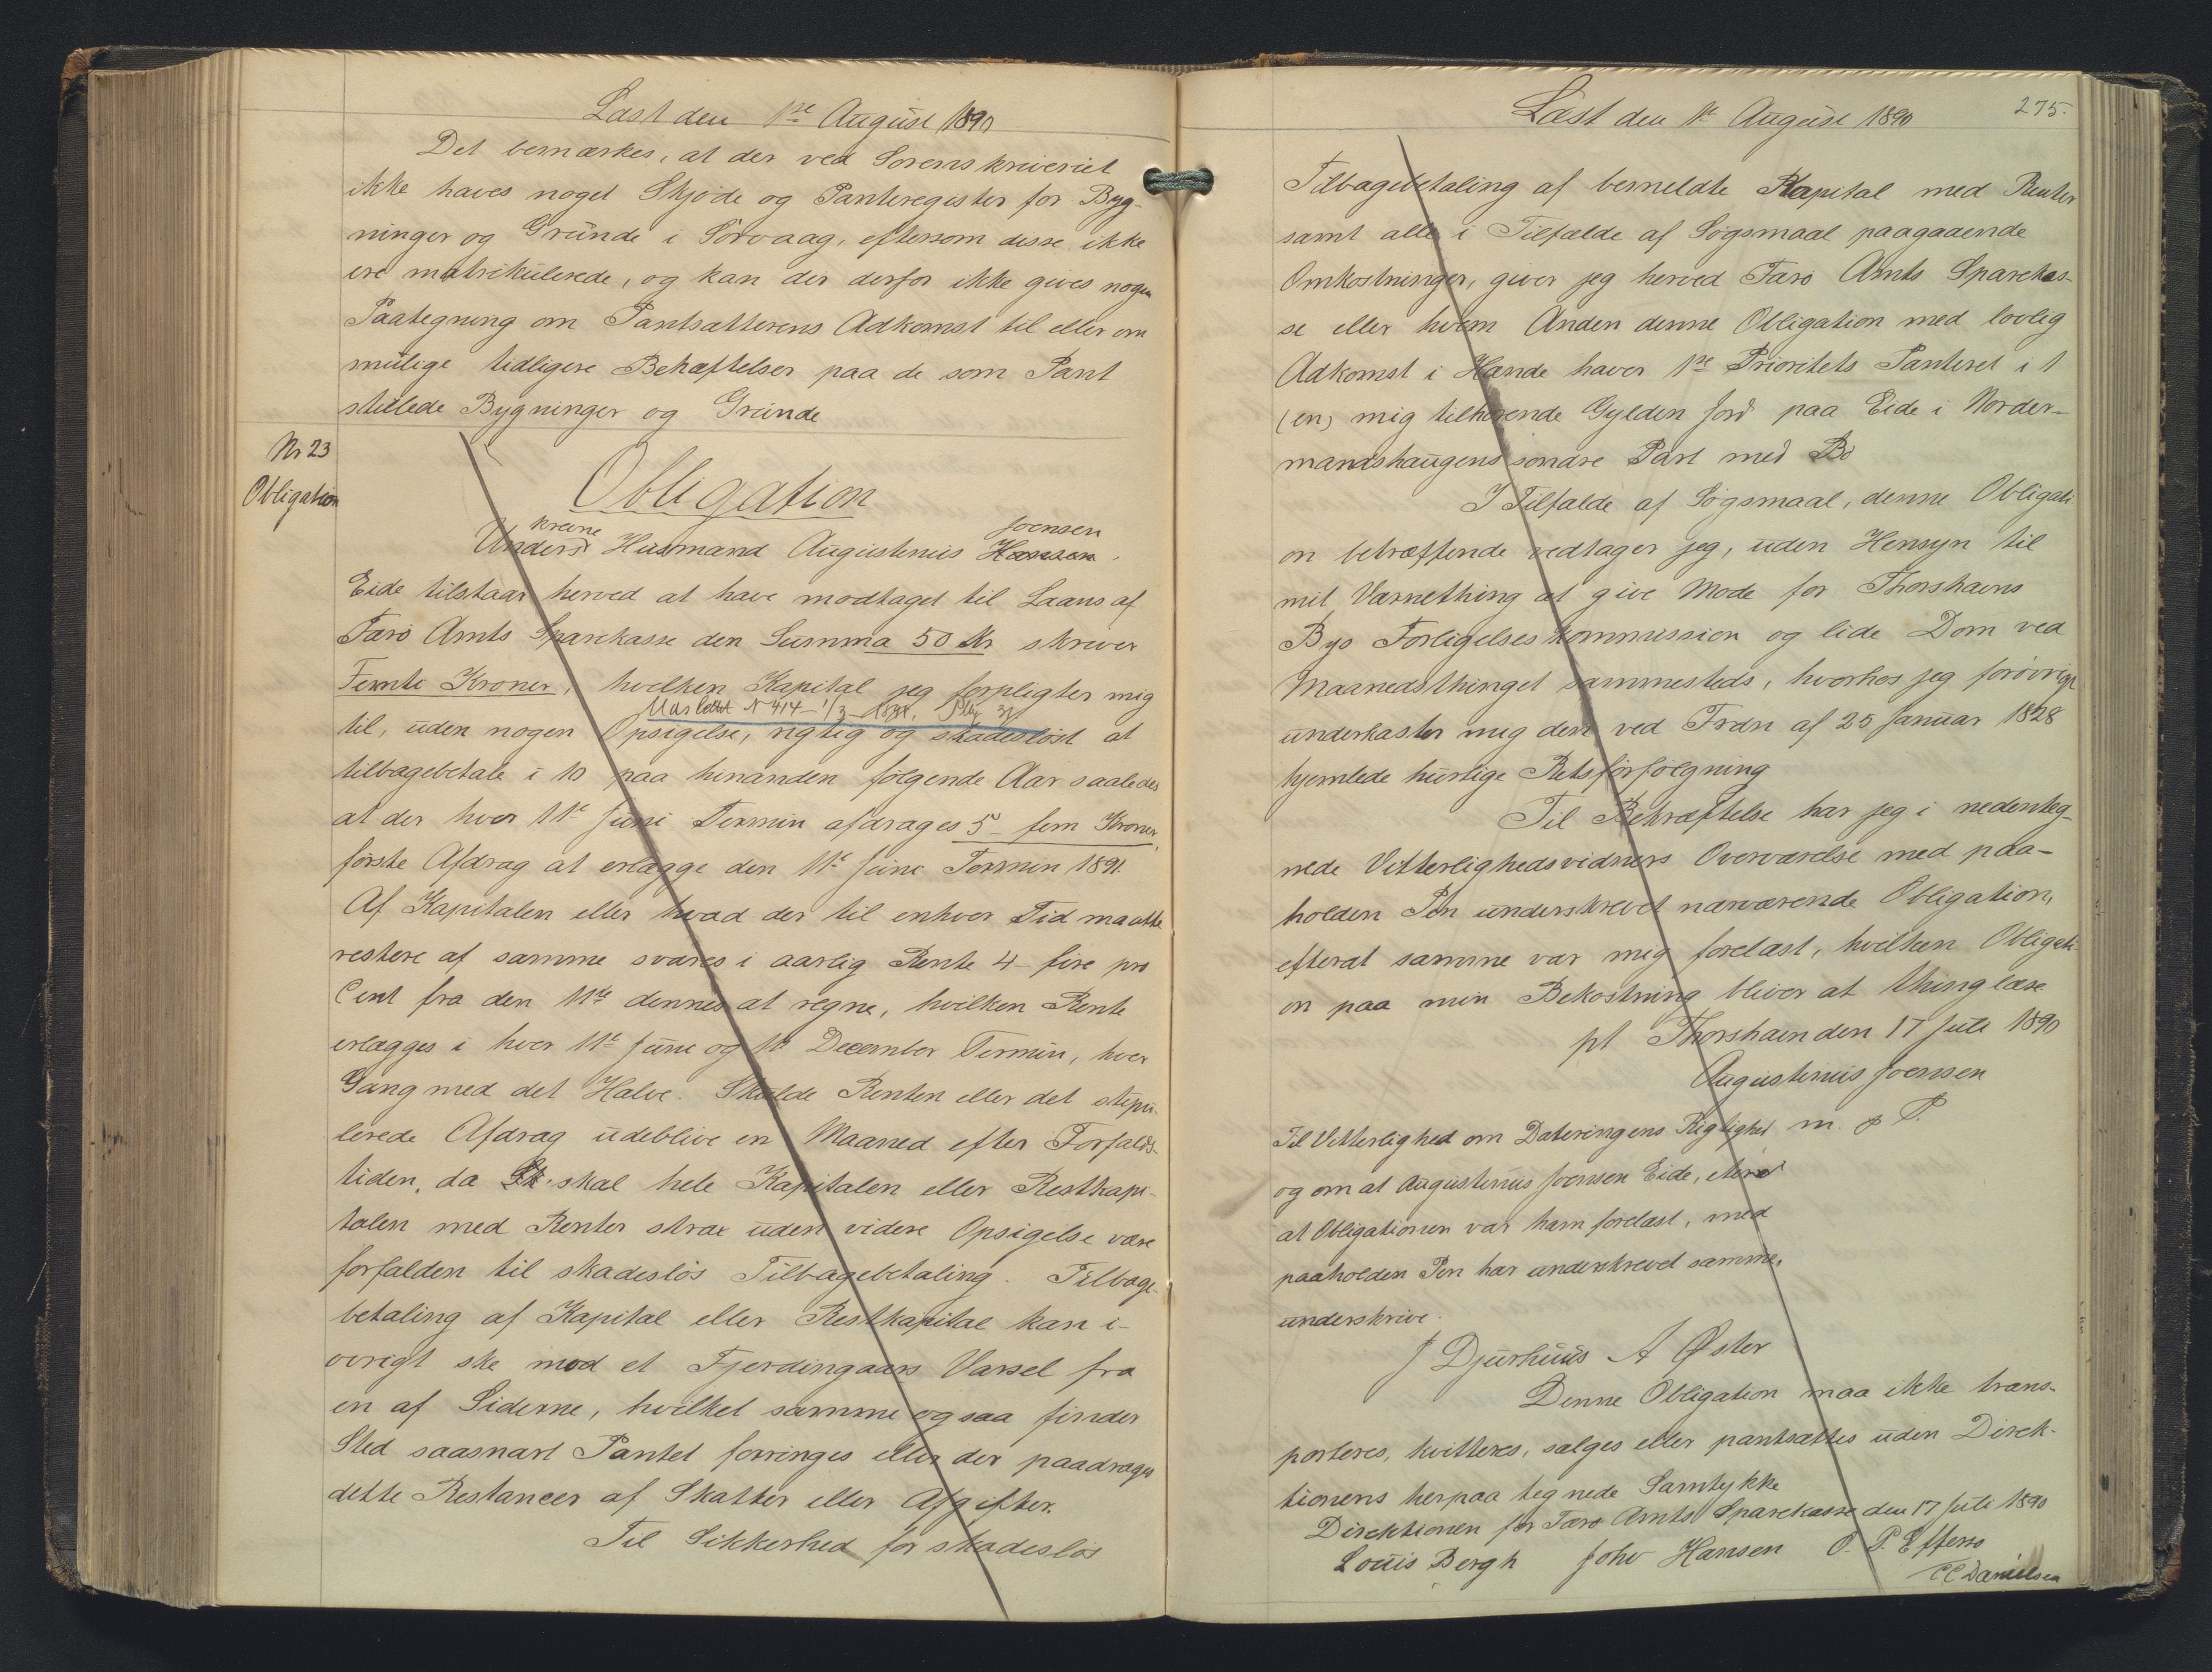 Læst den 1ste August 1890
Det bemærkes, at der ved Sorenskriveriet
ikke haves noget Skjøde og Panteregister for Byg-
ninger og Grunde i Sorvaag, eftersom disse ikke
ere matrikulerede, og kan der derfor ikke gives nogen
Paategning om Pantsætterens Adkomst til eller om
mulige tidligere Behæftelser paa de som Pant
stillede Bygninger og Grunde
Nr 23
Obligation
Obligation
krevne Joensen
Unders Husmand Augustinus Hansen
Eide tilstaar herved at have modtaget til Laans af
Færø Amts Sparekasse den Summa 50 Kr skriver
Femti Kroner, hvilken Kapital jeg forpligter mig
Udslettet N 414 - 1/3
til, uden nogen Opsigelse, rigtig og skadesløst at
tilbagebetale i 10 paa hinanden følgende Aar saaledes
at der hver 11te Juni Termin afdrages 5 - fem Kroner,
første Afdrag at erlægge den 11te Juni Termin 1891.
Af Kapitalen eller hvad der til enhver Tid maatte
restere af samme svares i aarlig Rente 4 - fire pro
Cent fra den 11te dennes at regne, hvilken Rente
erlægges i hver 11te Juni og 11te December Termin, hver
Gang med det Halve. Skulde Renten eller det stipu-
lerede Afdrag udeblive en Maaned efter Forfalds-
tiden, da skal hele Kapitalen eller Restkapi-
talen med Renter strax uden videre Opsigelse være
forfalden til skadesløs Tilbagebetaling. Tilbage-
betaling af Kapital eller Restkapital kan i-
øvrigt ske mod et Fjerdingaars Varsel fra
en af Siderne, hvilket samme ogsaa finder
Sted saasnart Pantet forringes eller der paadrages
dette Restancer af Skatter eller Afgifter.
Til Sikkerhed for skadesløs
Læst den 1te August 1890
275.
Tilbagebetaling af bemeldte Kapital med Renter
samt alle i Tilfælde af Søgsmaal paagaaende
Omkostninger, giver jeg herved Færø Amts Sparekas-
se eller hvem Anden denne Obligation med lovlig
Adkomst i Hænde haver 1ste Prioritets Panteret i 1
(en) mig tilhørende Gylden Jord paa Eide i Norder-
mandshaugens søndre Part med Bø
I Tilfælde af Søgsmaal, denne Obligati-
on betræffende vedtager jeg, uden Hensyn til
mit Værnething at give Møde for Thorshavns
Bys Forligelseskommission og lide Dom ved
Maanedsthinget sammesteds, hvorhos jeg forøvrigt
underkaster mig den ved Frdn af 25 Januar 1828
hjemlede hurtige Retsforfølgning
Til Bekræftelse har jeg i nedenteg-
nede Vitterlighedsvidners Overværelse med paa-
holden Pen underskrevet nærværende Obligation,
efterat samme var mig forelæst, hvilken Obligati-
on paa min Bekostning bliver at thinglæse
pt Thorshavn den 17 Juli 1890
Augustinus Joensen
m. p P.
Til Vitterlighed om Dateringens Rigtighed
og om at Augustinus Joensen Eide, efterat
at Obligationen var ham forelæst, med
paaholden Pen har underskrevet samme,
underskrive.
J Djurhuus A Øster
Denne Obligation maa ikke trans-
porteres, kvitteres, sælges eller pantsættes uden Direk-
tionens herpaa tegnede Samtykke
Direktionen for Færø Amts Sparekasse den 17 Juli 1890
Louis Bergh Johs Hansen O. P. Effersø
CC Danielsen